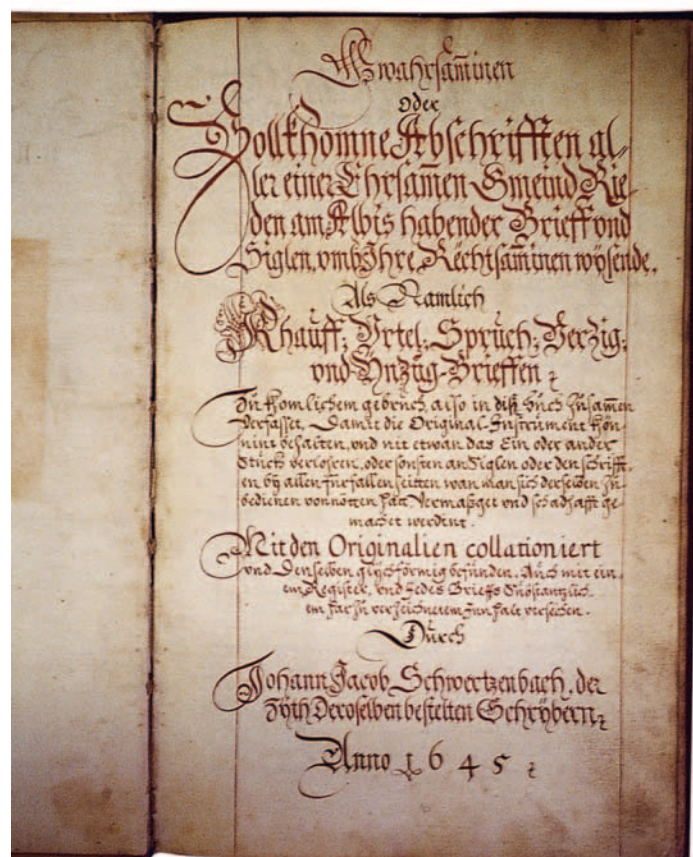 Wahrsam̃inen
Oder
Vollkhomne Abschrifften al-
ler einer Ehrsam̃en Gmeind Rie-
den am Albis habender Brieff vnd
Siglen, vmb Ihre Rechtsam̃inen wÿsende,
Als Namlich
Khauff-, Vrtel-, Sprüch-, Verzig-,
vnd Ynzüg-Brieffen
Zu komlichem gebrüch, also in diß Büch zusam̃en
Verfasset, Damit die Original-Instrument kön-
nint behalten, vnd nit etwan das Ein oder ander
Stuck verlohren, oder sonsten an Siglen oder den schrifft-
en bÿ allen fürfallenheitten wan man sich derselben zu-
bedienen vonnötten hatt, Vermaßget vnd schadhafft ge-
machet werdint.
Mit den Originalien collationiert
vnd Denselben glÿchförmig befunden, Auch mit ein-
em Register, vnd Jedes Brieffs Substantzlich-
em harzu verzeichnetem Innhalt versehen.
Durch
Johann Jacob Schwertzenbach, der
Zÿth Deroselben bestelten Schrÿbern
Anno 1645